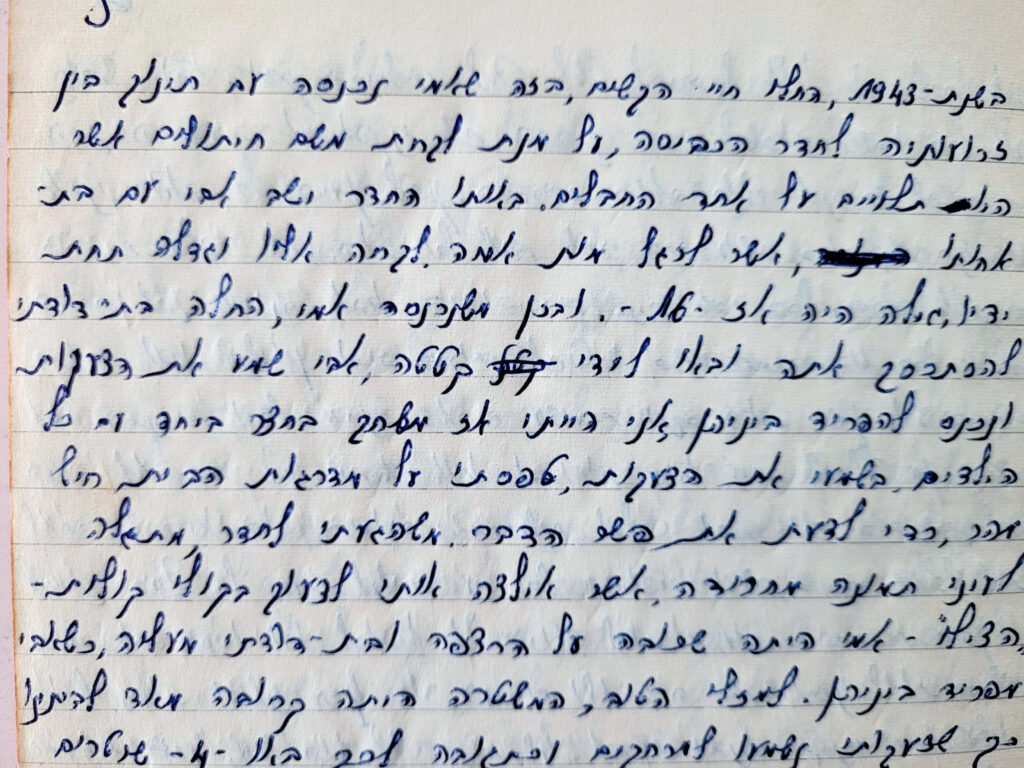 בשנת-1943, החלו חיי הקשים, בזה שאמי נכנסה עם תינוק בין
זרועותיה לחדר הכביסה, על מנת לקחת משם חיתולים אשר
היו תלויים על אחד החבלים. באותו החדר ישב אבי עם בת-
אחותו, אשר לרגל מות אמה. לקחה אליו וגדלה תחת
ידיו, גילה היה אז -16-. ובכן משנכנסה אמי, החלה בת-דודתי
להסתכסך אתה ובאו לידי קטטה, אבי שמע את הצעקות
ונכנס להפריד ביניהן. אני הייתי אז משחק בחצר ביחד עם כל
הילדים. בשמעי את הצעקות, טפסתי על מדרגות הבית חיש
מהר, כדי לדעת את פשר הדבר. משהגעתי לחדר, מתגלה
לעיני תמונה מחרידה, אשר אילצה אותי לצעוק בקולי קולות-
"הצילו" - אמי היתה שכובה על הרצפה ובת-דודתי מעליה, כשאבי
מפריד ביניהן. למזלי הטוב, המשטרה היתה קרובה מאוד לביתינו
כך שצעקותי נשמעו למרחקים וכתגובה לכך באו -4- שוטרים